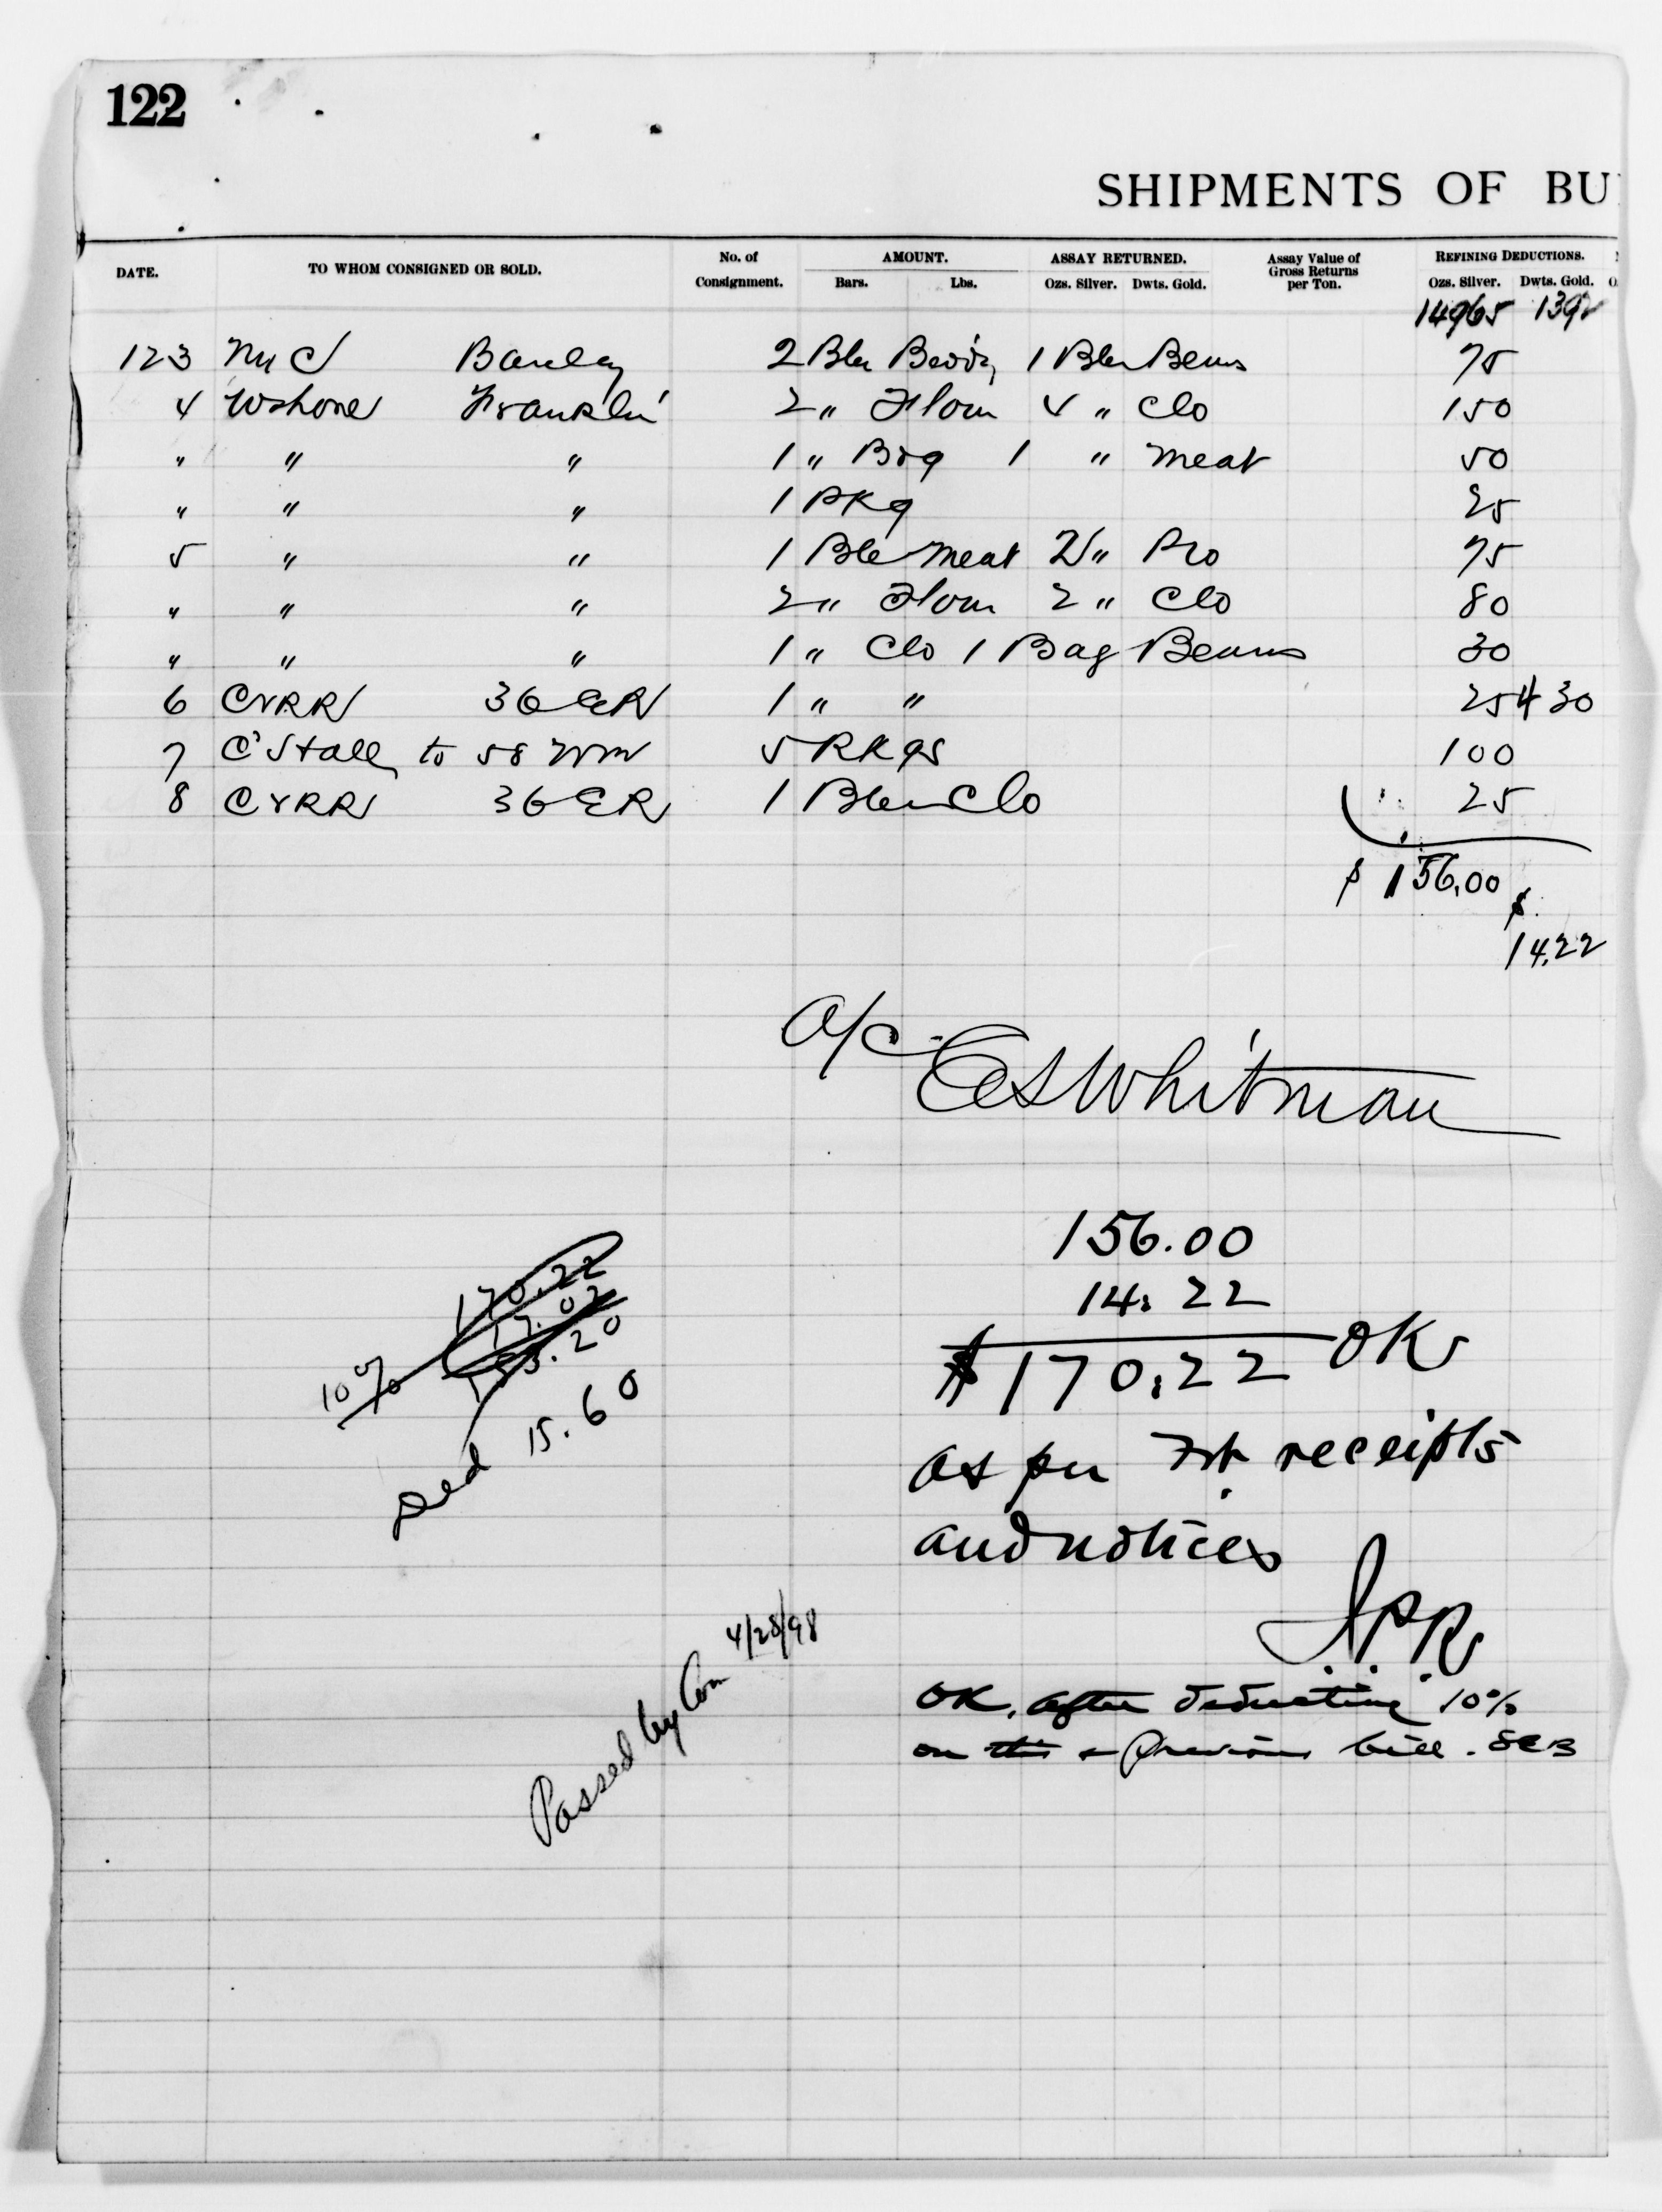 122
SHIPMENTS OF BU
DATE. TO WHOM CONSIGNED OR SOLD. No. of Consignment. AMOUNT. Bars. Lbs. ASSAY RETURNED. Ozs. Silver. Dwts. Gold. Assay Value of Gross Returns per Ton. REFINING DEDUCTIONS. Ozs. Silver. Dwts. Gold.
14965 1392
123 My C Barclay 2 Bbls 1 Bbl Beans 75
4 Wshore Franklin 2 " Flour 4 " Clo 150
" " " 1 " Bxg 1 " Meat 50
" " " 1 Pkg 25
5 " " 1 Ble Meat 2 " Pro 75
" " " 2 " Flour 2 " Clo 80
" " " 1 " Clo 1 Bag Beans 30
6 CVRR 36 ER 1 " " 25 430
7 C Stall to 58 Wm 5 Pkgs 100
8 CVRR 36 ER 1 Ble Clo 25
$ 156.00
$
14.22
a/c E S Whitman
156.00
14.22
$170.22 OK
as per frt receipts
and notices
S.P.R
OK. after deducting 10%
on this & previous bill. SCB
170.22
10% 17.02
153.20
Ded 15.60
Passed by Com 4/28/98